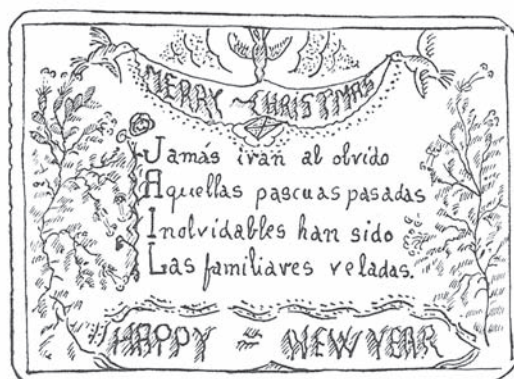 MERRY CHRISTMAS
Jamás iran al olvido
Aquellas pascuas pasadas
Inolvidables han sido
Las familiares veladas.
HAPPY = NEW YEAR